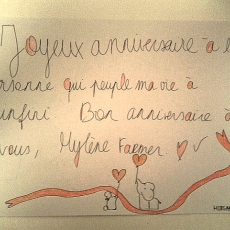 Joyeux anniversaire à l
ersonne qui peuple ma vie à
infini Bon anniversaire à
vous, Mylène Farmer